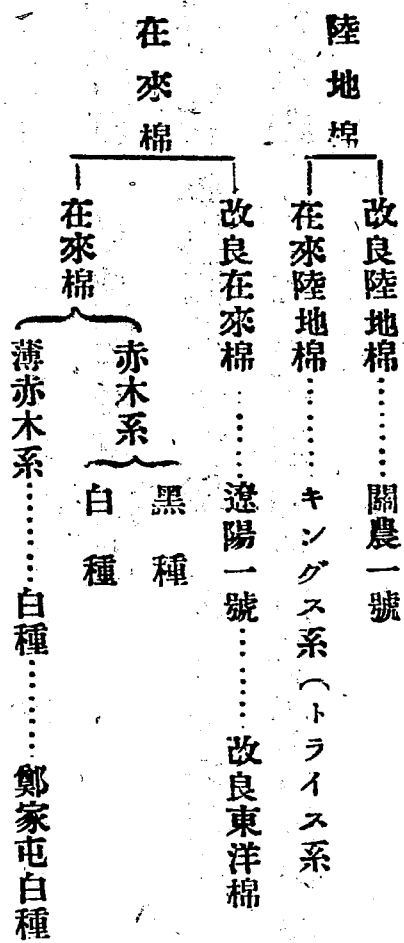 陸地棉
改良陸地棉………關農一號
在來陸地棉………キングス系（トライス系
在來棉
改良在來棉………遼陽一號………改良東洋棉
在來棉
赤木系
黑種
白種
薄赤木系………白種………鄭家屯白種